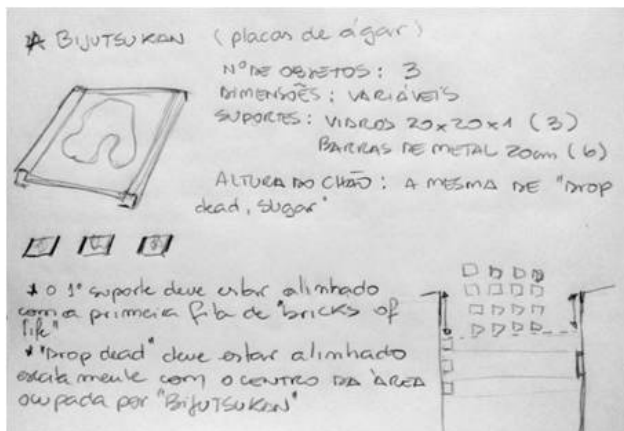 * BIJUTSUKAN (placas de ágar)
Nº DE OBJETOS: 3
DIMENSÕES: VARIÁVEIS
SUPORTES: VIDROS 20x20x1 (3)
BARRAS DE METAL 20cm (6)
ALTURA DO CHÃO: A MESMA DE "Drop
dead, sugar"
* O 1º suporte deve estar alinhado
com a primeira fila de "bricks of
life"
* "Drop dead" deve estar alinhado
exatamente com o CENTRO DA ÁREA
ocupada por "BIJUTSUKAN"